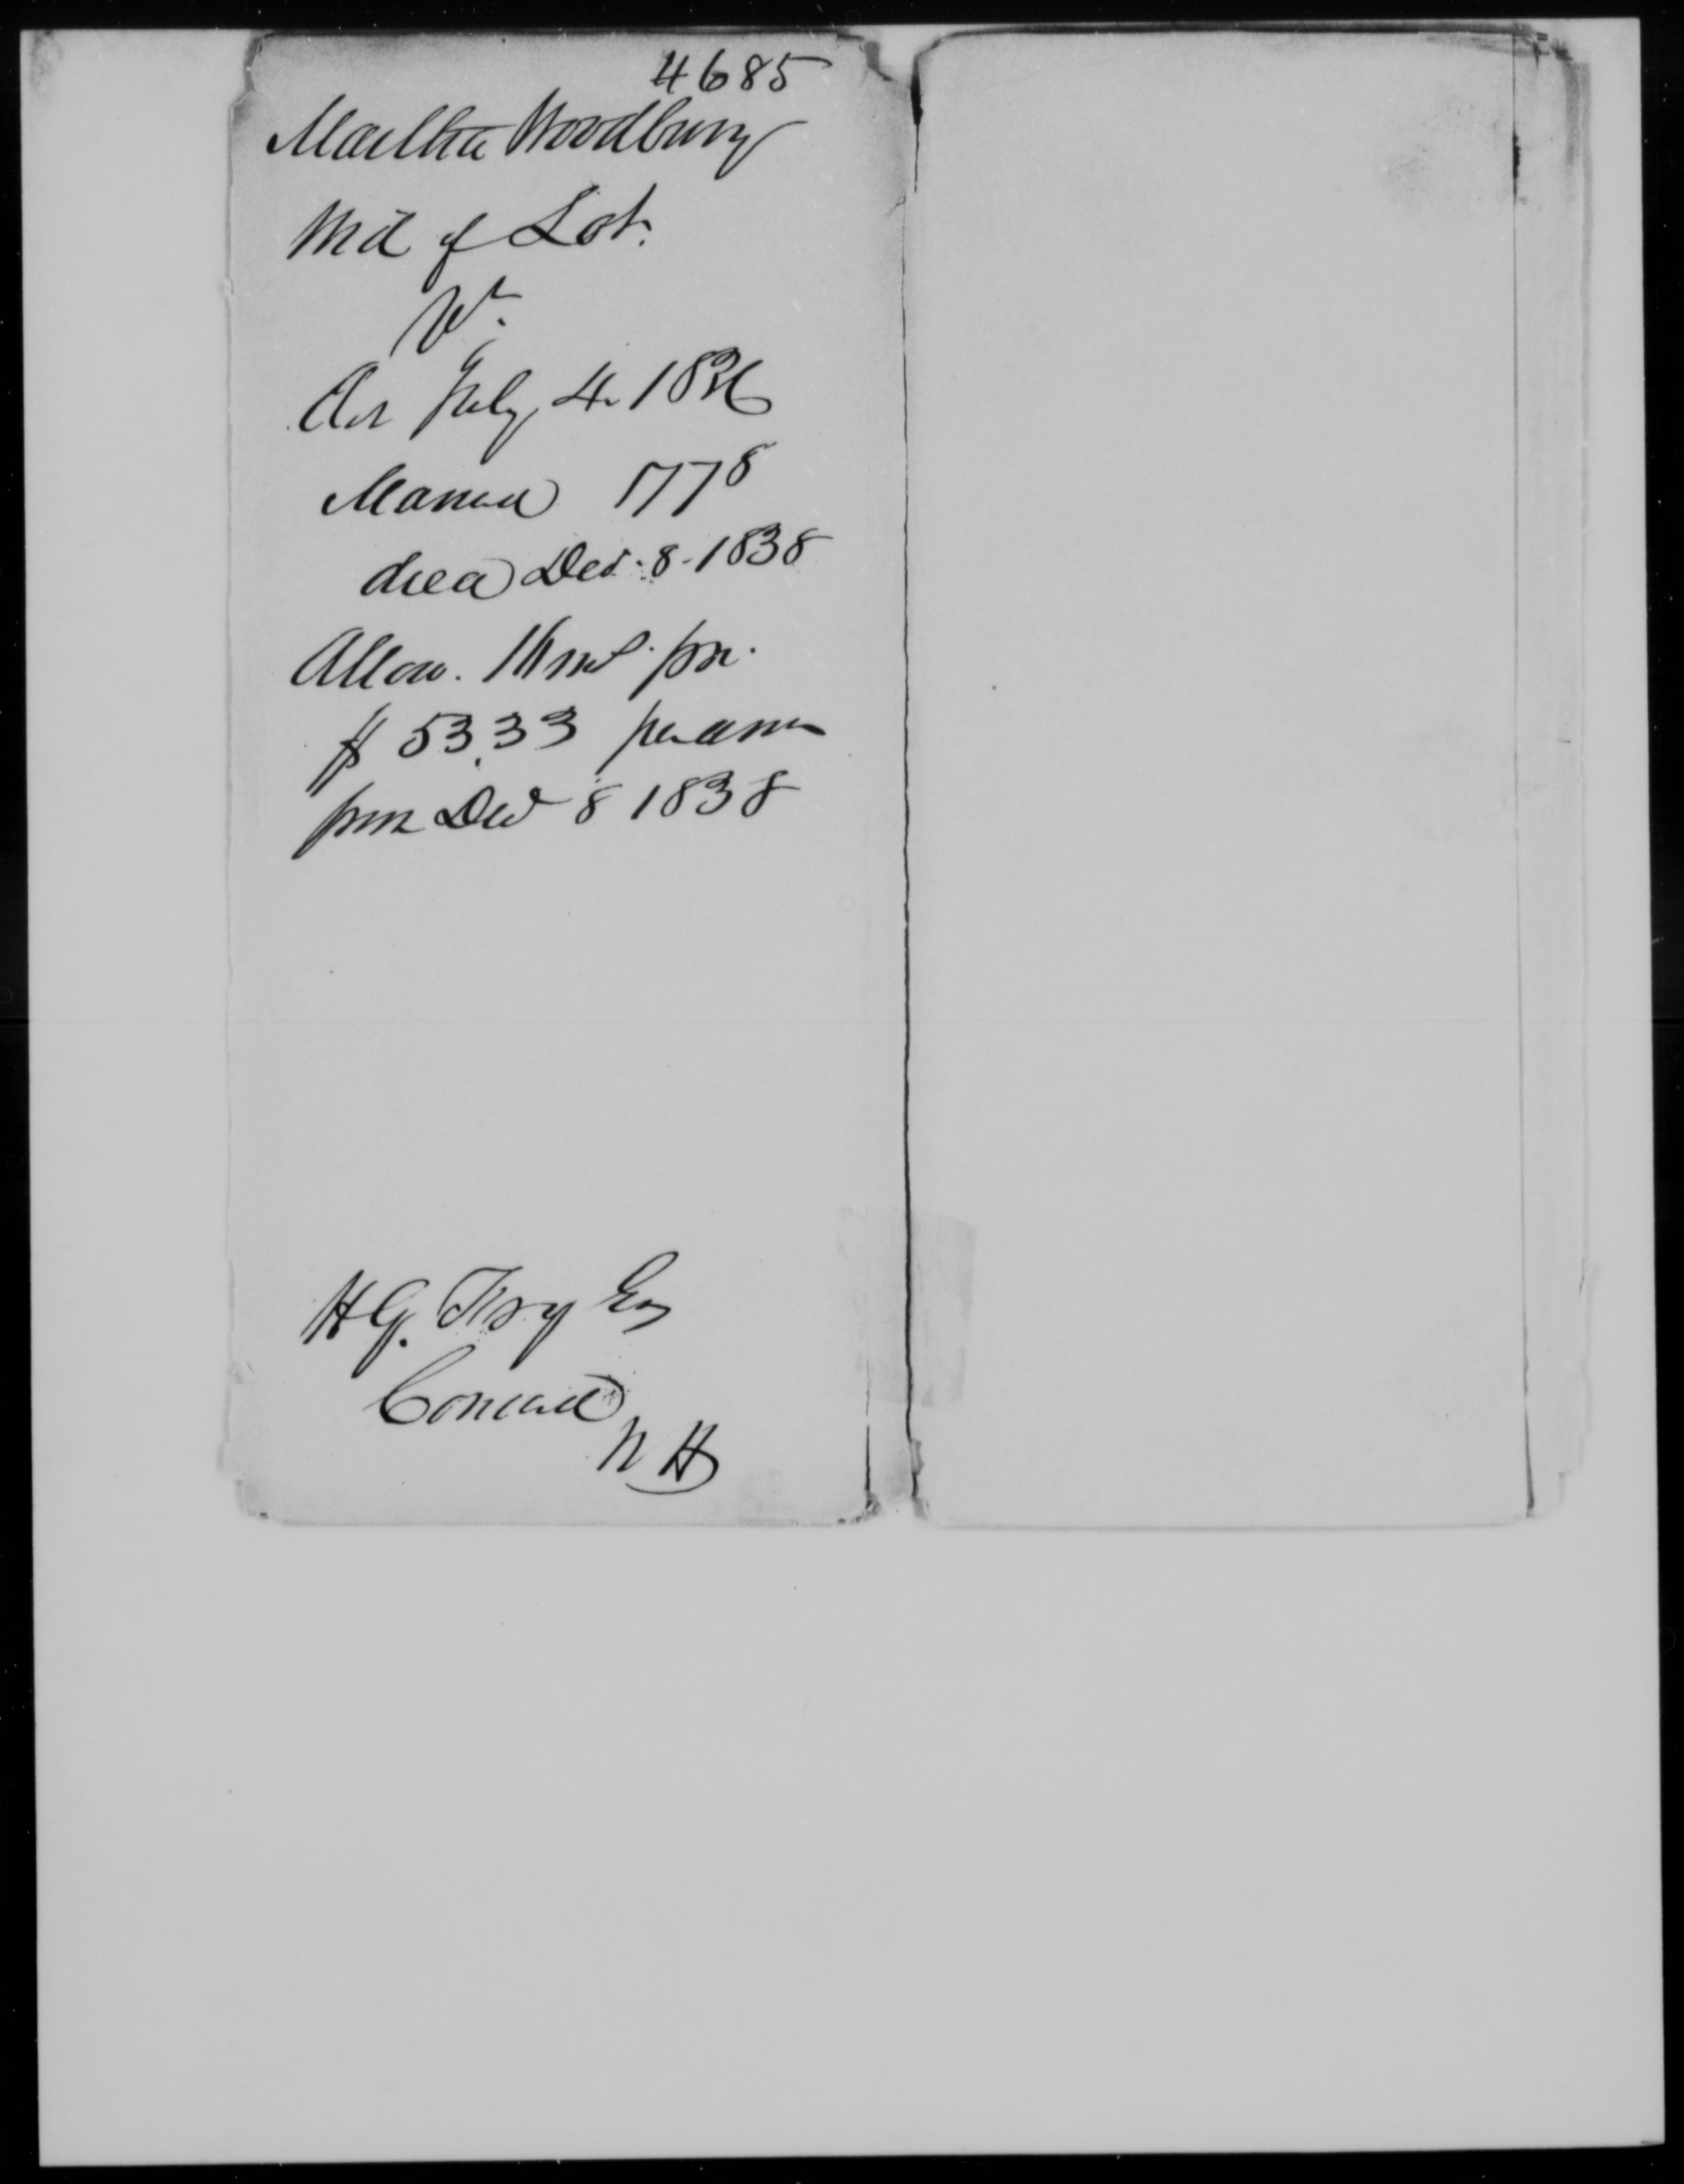 4685
Martha Woodbury
Wid of Lot.
Vt
Act July 4. 1836
Married 1778
died Dec. 8. 1838
Allow. 16 mos. pri.
$ 53.33 per ann
from Dec 8 1838
H G. Esq
Concord
N H